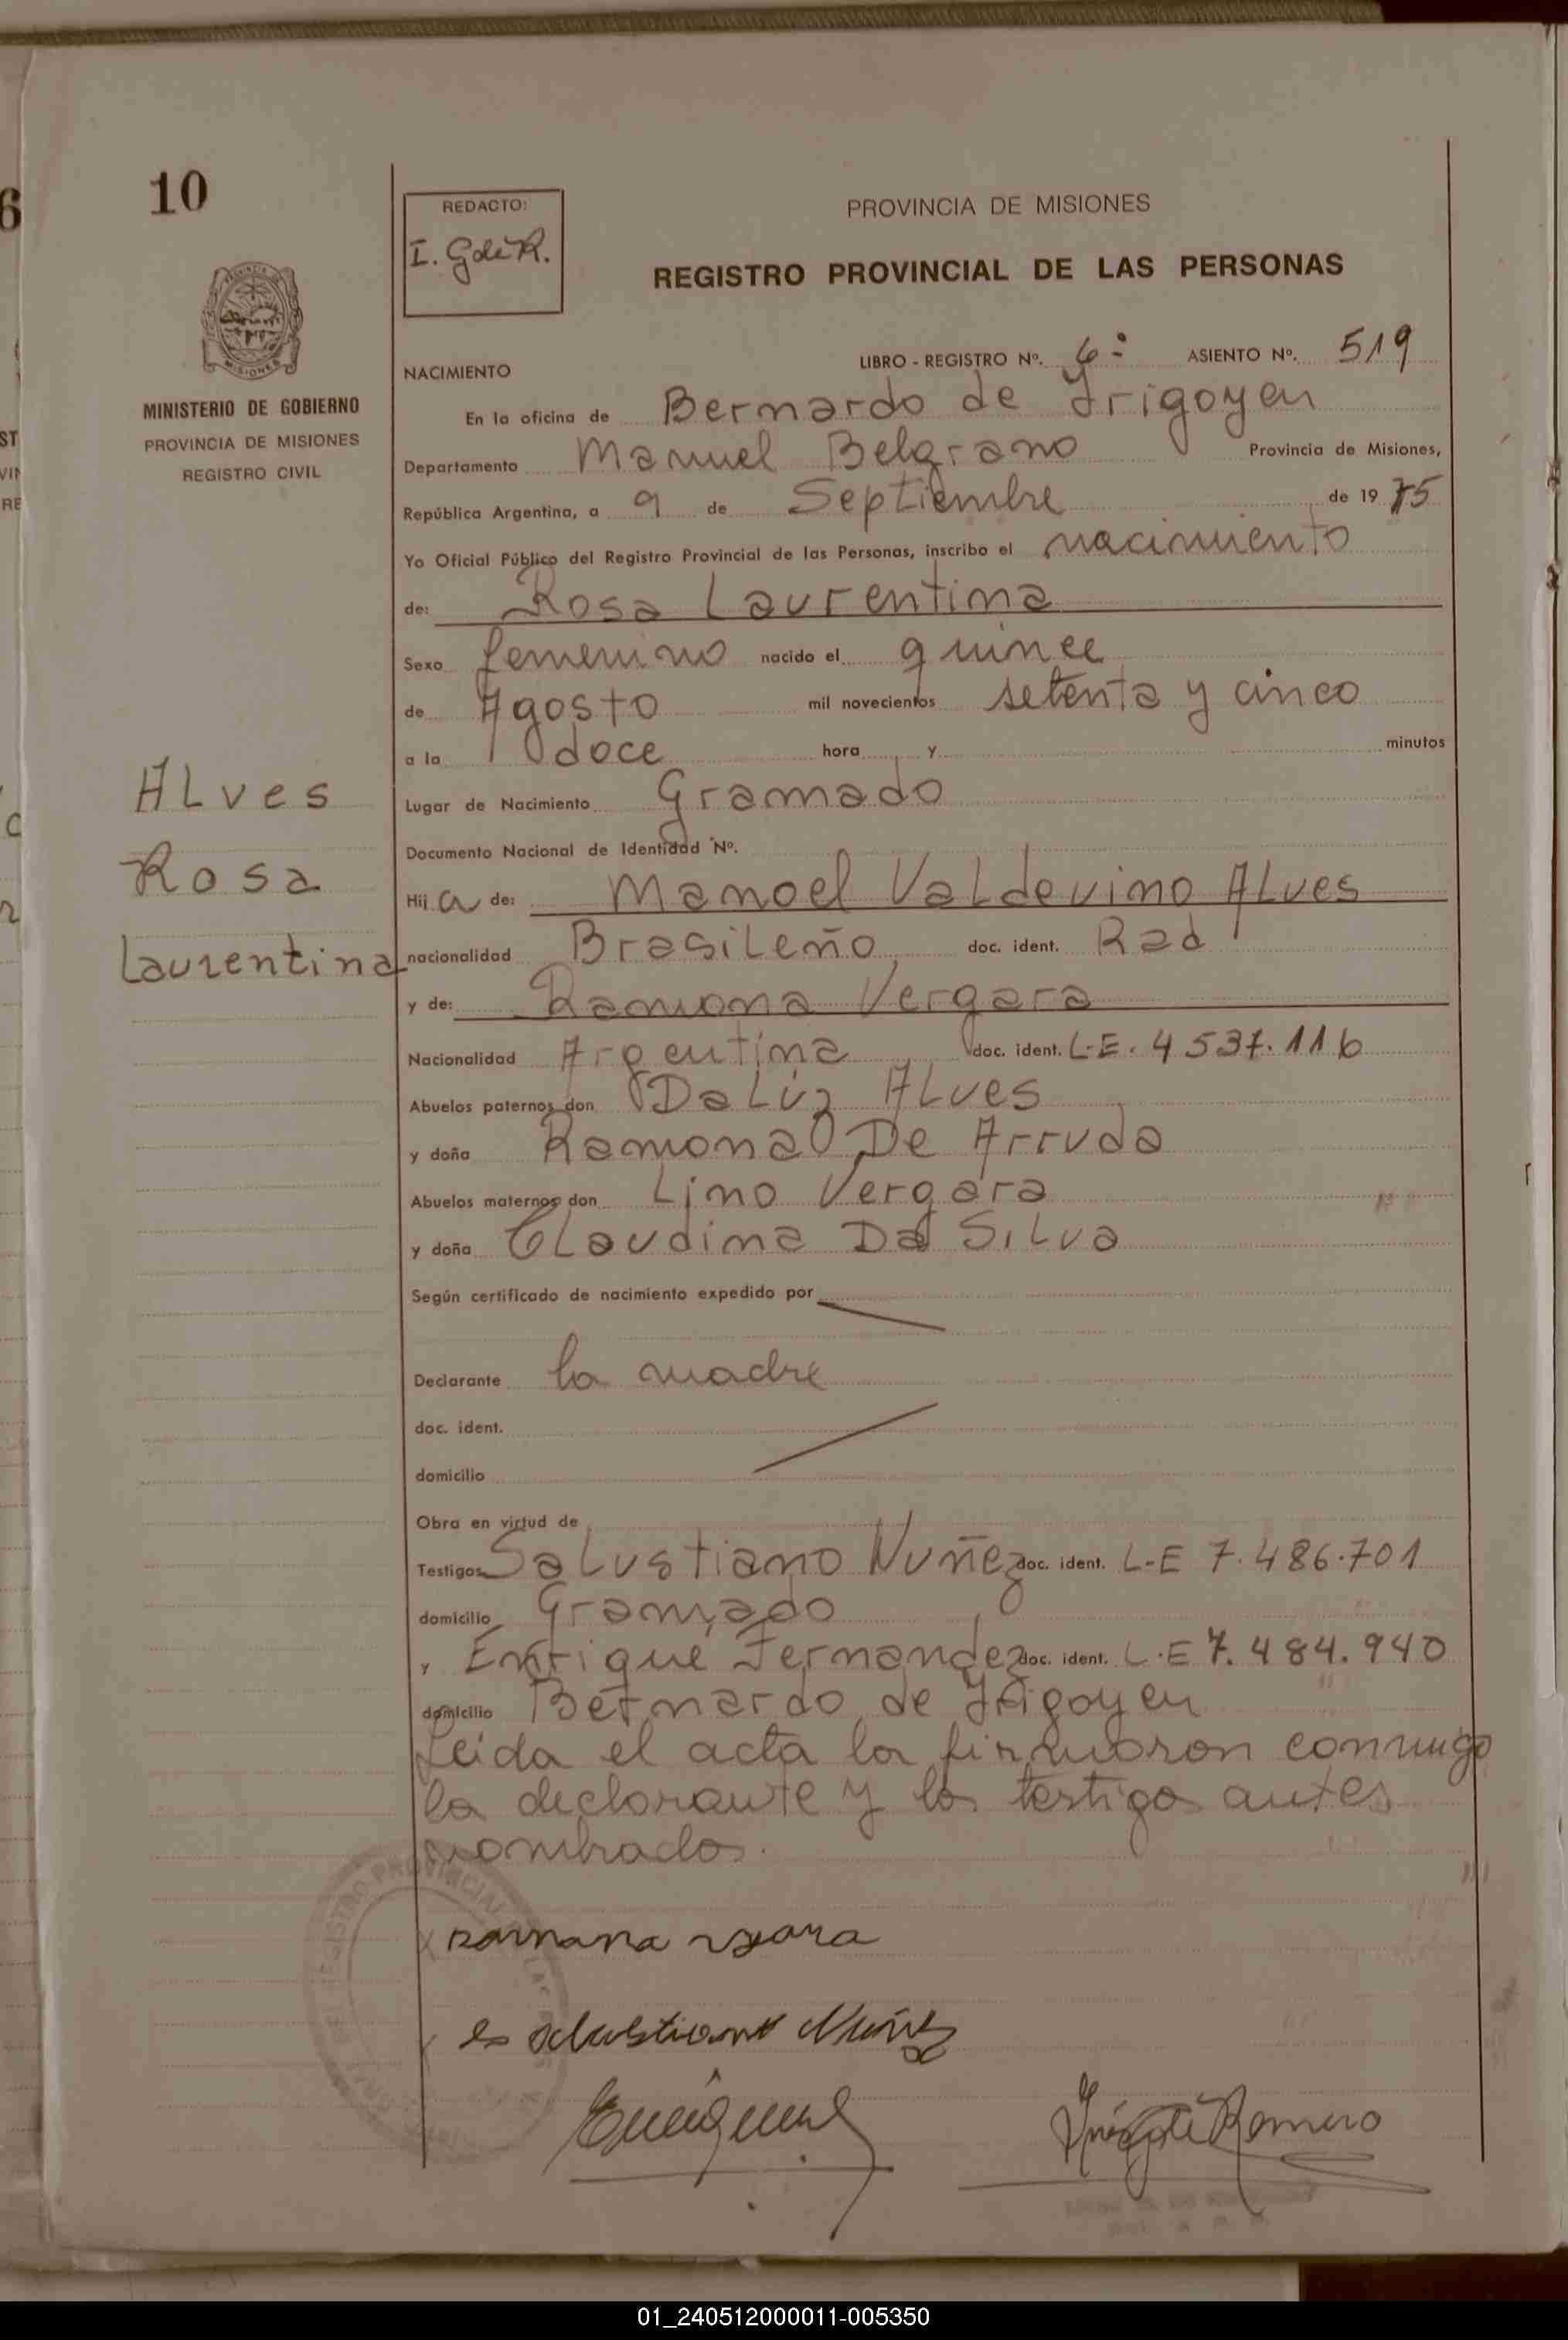 10
MINISTERIO DE GOBIERNO
PROVINCIA DE MISIONES
REGISTRO CIVIL
ALves
Rosa
Laurentina
REDACTO:
I. G de R.
PROVINCIA DE MISIONES
REGISTRO PROVINCIAL DE LAS PERSONAS
LIBRO - REGISTRO Nº. 6º ASIENTO Nº. 519
NACIMIENTO
En la oficina de Bernardo de Irigoyen
Departamento Manuel Belgrano Provincia de Misiones,
República Argentina, a 9 de Septiembre de 1975
Yo Oficial Público del Registro Provincial de las Personas, inscribo el nacimiento
de: Rosa Laurentina
Sexo femenino nacido el quince
de Agosto mil novecientos setenta y cinco
a la doce hora y minutos
Lugar de Nacimiento Gramado
Documento Nacional de Identidad Nº.
Hija de: Manoel Valdevino Alves
nacionalidad Brasileño doc. ident. Rad
y de: Ramona Vergara
Nacionalidad Argentina doc. ident. L.E. 4537.116
Abuelos paternos don Da Luz Alves
y doña Ramona De Arruda
Abuelos maternos don Lino Vergara
y doña Claudina Da Silva
Según certificado de nacimiento expedido por
Declarante la madre
doc. ident.
domicilio
Obra en virtud de
Testigos Salustiano Nuñez doc. ident. L-E 7.486.701
domicilio Gramado
y Enrique Fernandez doc. ident. L.E 7.484.940
domicilio Bernardo de Irigoyen
Leida el acta la firmaron conmigo
la declarante y los testigos antes
nombrados.
Ramona
Nuñez
Romero
01_240512000011-005350